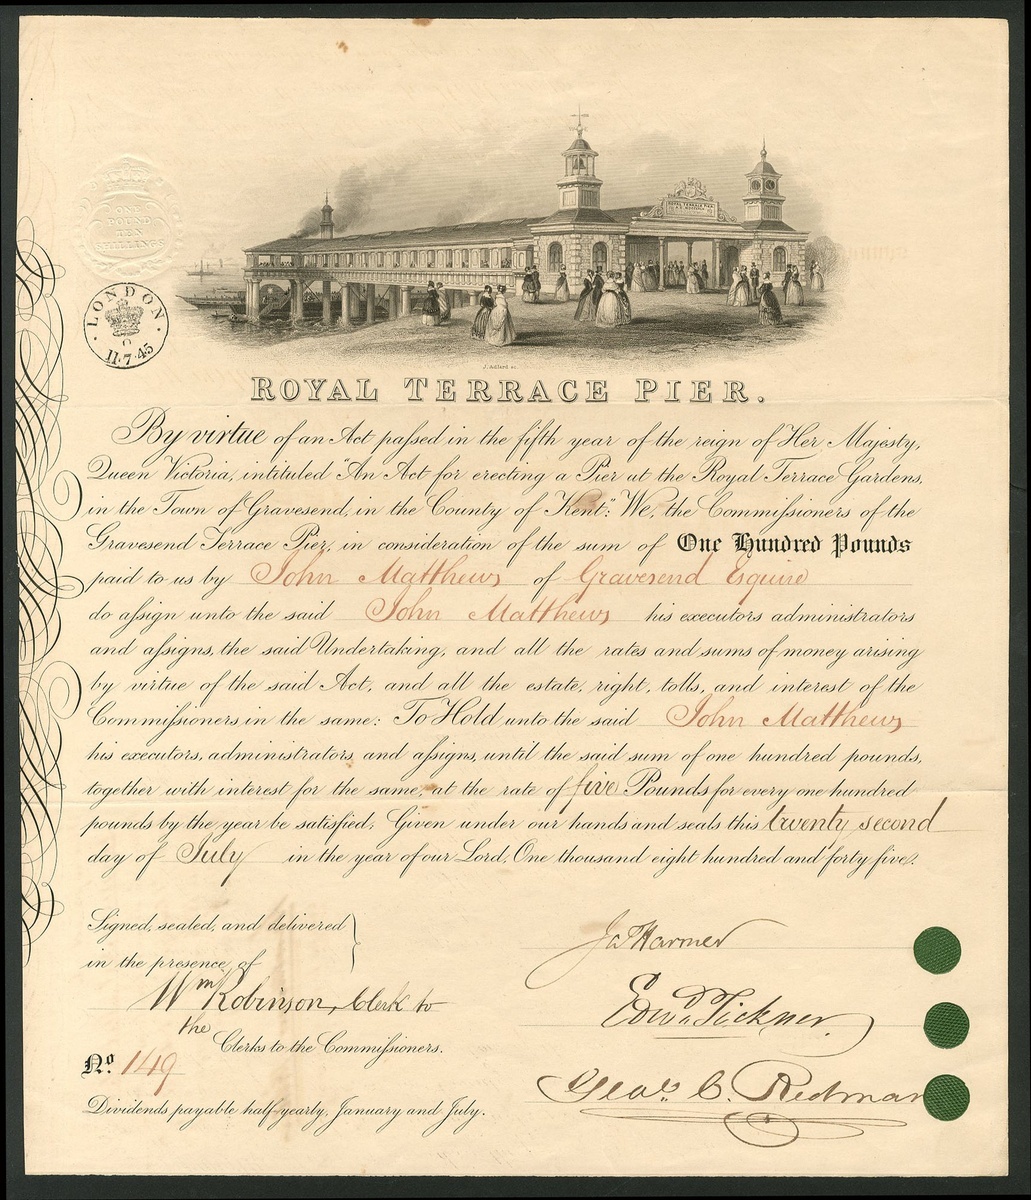 ONE
POUND
TEN
SHILLINGS
LONDON
11·7·45
ROYAL TERRACE PIER
J. Adlard sc.
ROYAL TERRACE PIER.
By virtue of an Act passed in the fifth year of the reign of Her Majesty,
Queen Victoria, intituled "An Act for erecting a Pier at the Royal Terrace Gardens,
in the Town of Gravesend, in the County of Kent": We, the Commissioners of the
Gravesend Terrace Pier, in consideration of the sum of One Hundred Pounds
paid to us by John Matthews of Gravesend Esquire
do assign unto the said John Matthews his executors administrators
and assigns, the said Undertaking, and all the rates and sums of money arising
by virtue of the said Act, and all the estate, right, tolls, and interest of the
Commissioners in the same: To Hold unto the said John Matthews
his executors, administrators, and assigns, until the said sum of one hundred pounds,
together with interest for the same, at the rate of five Pounds for every one hundred
pounds by the year be satisfied, Given under our hands and seals this twenty second
day of July in the year of our Lord, One thousand eight hundred and forty five.
Signed, sealed, and delivered
in the presence of
Wm Robinson, Clerk to
the
Clerks to the Commissioners.
No. 149
Dividends payable half-yearly, January and July.
Jas Harmer
Edwd Tickner.
Geo. C. Redman